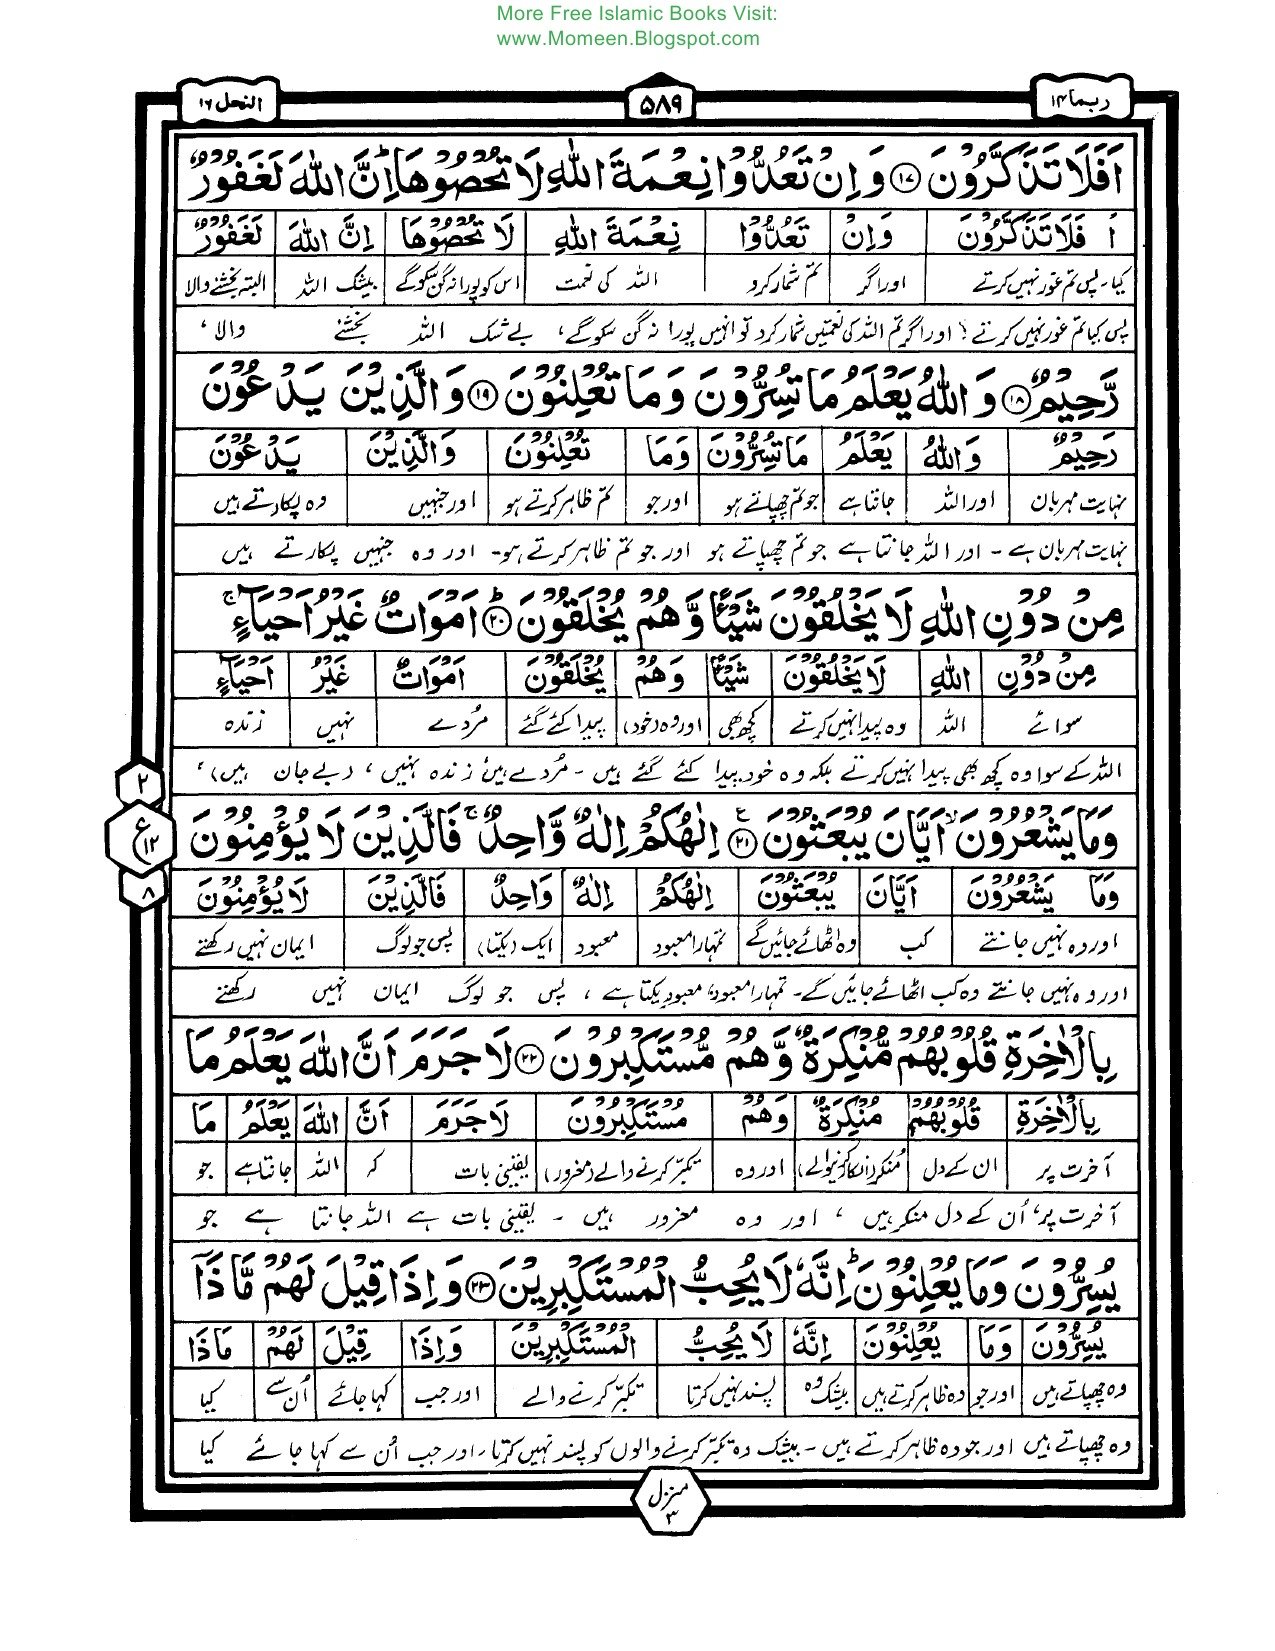 More Free Islamic Books Visit:
www.Momeen.Blogspot.com
ربما ۱۴
۵۸۹
النحل ۱۶
اَفَلَا تَذَكَّرُوْنَ ۝۱۷ وَاِنْ تَعُدُّوْا نِعْمَةَ اللّٰهِ لَا تُحْصُوْهَا ؕ اِنَّ اللّٰهَ لَغَفُوْرٌ
اَ فَلَا تَذَكَّرُوْنَ وَاِنْ تَعُدُّوْا نِعْمَةَ اللّٰهِ لَا تُحْصُوْهَا اِنَّ اللّٰهَ لَغَفُوْرٌ
کیا۔ پس تم غور نہیں کرتے اور اگر تم شمار کرو اللہ کی نعمت اس کو پورا نہ گن سکو گے بیشک اللہ البتہ بخشنے والا
پس کیا تم غور نہیں کرتے؟ اور اگر تم اللہ کی نعمتیں شمار کرو تو انہیں پورا نہ گن سکو گے، بے شک اللہ بخشنے والا،
رَّحِيْمٌ ۝۱۸ وَاللّٰهُ يَعْلَمُ مَا تُسِرُّوْنَ وَمَا تُعْلِنُوْنَ ۝۱۹ وَالَّذِيْنَ يَدْعُوْنَ
رَحِيْمٌ وَاللّٰهُ يَعْلَمُ مَا تُسِرُّوْنَ وَمَا تُعْلِنُوْنَ وَالَّذِيْنَ يَدْعُوْنَ
نہایت مہربان اور اللہ جانتا ہے جو تم چھپاتے ہو اور جو تم ظاہر کرتے ہو اور جنہیں وہ پکارتے ہیں
نہایت مہربان ہے۔ اور اللہ جانتا ہے جو تم چھپاتے ہو اور جو تم ظاہر کرتے ہو۔ اور وہ جنہیں پکارتے ہیں
مِنْ دُوْنِ اللّٰهِ لَا يَخْلُقُوْنَ شَيْـًٔا وَّهُمْ يُخْلَقُوْنَ ؕ۝۲۰ اَمْوَاتٌ غَيْرُ اَحْيَآءٍ ۚ
مِنْ دُوْنِ اللّٰهِ لَا يَخْلُقُوْنَ شَيْـًٔا وَهُمْ يُخْلَقُوْنَ اَمْوَاتٌ غَيْرُ اَحْيَآءٍ
سوائے اللہ وہ پیدا نہیں کرتے کچھ بھی اور وہ (خود) پیدا کئے گئے مُردے نہیں زندہ
اللہ کے سوا وہ کچھ بھی پیدا نہیں کرتے بلکہ وہ خود پیدا کئے گئے ہیں۔ مُردے ہیں زندہ نہیں، (بے جان ہیں)،
وَمَا يَشْعُرُوْنَ ۙ اَيَّانَ يُبْعَثُوْنَ ۝۲۱ ع اِلٰهُكُمْ اِلٰهٌ وَّاحِدٌ ۚ فَالَّذِيْنَ لَا يُؤْمِنُوْنَ
۲
ع ۱۲
۸
وَمَا يَشْعُرُوْنَ اَيَّانَ يُبْعَثُوْنَ اِلٰهُكُمْ اِلٰهٌ وَاحِدٌ فَالَّذِيْنَ لَا يُؤْمِنُوْنَ
اور وہ نہیں جانتے کب وہ اٹھائے جائیں گے تمہارا معبود معبود ایک (یکتا) پس جو لوگ ایمان نہیں رکھتے
اور وہ نہیں جانتے وہ کب اٹھائے جائیں گے۔ تمہارا معبود، معبود یکتا ہے، پس جو لوگ ایمان نہیں رکھتے
بِالْاٰخِرَةِ قُلُوْبُهُمْ مُّنْكِرَةٌ وَّهُمْ مُّسْتَكْبِرُوْنَ ۝۲۲ لَا جَرَمَ اَنَّ اللّٰهَ يَعْلَمُ مَا
بِالْاٰخِرَةِ قُلُوْبُهُمْ مُنْكِرَةٌ وَهُمْ مُسْتَكْبِرُوْنَ لَا جَرَمَ اَنَّ اللّٰهَ يَعْلَمُ مَا
آخرت پر ان کے دل مُنکر (انکار کرنیوالے) اور وہ تکبّر کرنے والے (مغرور) یقینی بات کہ اللہ جانتا ہے جو
آخرت پر، اُن کے دل منکر ہیں، اور وہ مغرور ہیں۔ یقینی بات ہے اللہ جانتا ہے جو
يُسِرُّوْنَ وَمَا يُعْلِنُوْنَ ؕ اِنَّهٗ لَا يُحِبُّ الْمُسْتَكْبِرِيْنَ ۝۲۳ وَاِذَا قِيْلَ لَهُمْ مَّاذَآ
يُسِرُّوْنَ وَمَا يُعْلِنُوْنَ اِنَّهٗ لَا يُحِبُّ الْمُسْتَكْبِرِيْنَ وَاِذَا قِيْلَ لَهُمْ مَاذَا
وہ چھپاتے ہیں اور جو وہ ظاہر کرتے ہیں بیشک وہ پسند نہیں کرتا تکبّر کرنے والے اور جب کہا جائے اُن سے کیا
وہ چھپاتے ہیں اور جو وہ ظاہر کرتے ہیں۔ بیشک وہ تکبّر کرنے والوں کو پسند نہیں کرتا، اور جب اُن سے کہا جائے کیا
منزل ۳